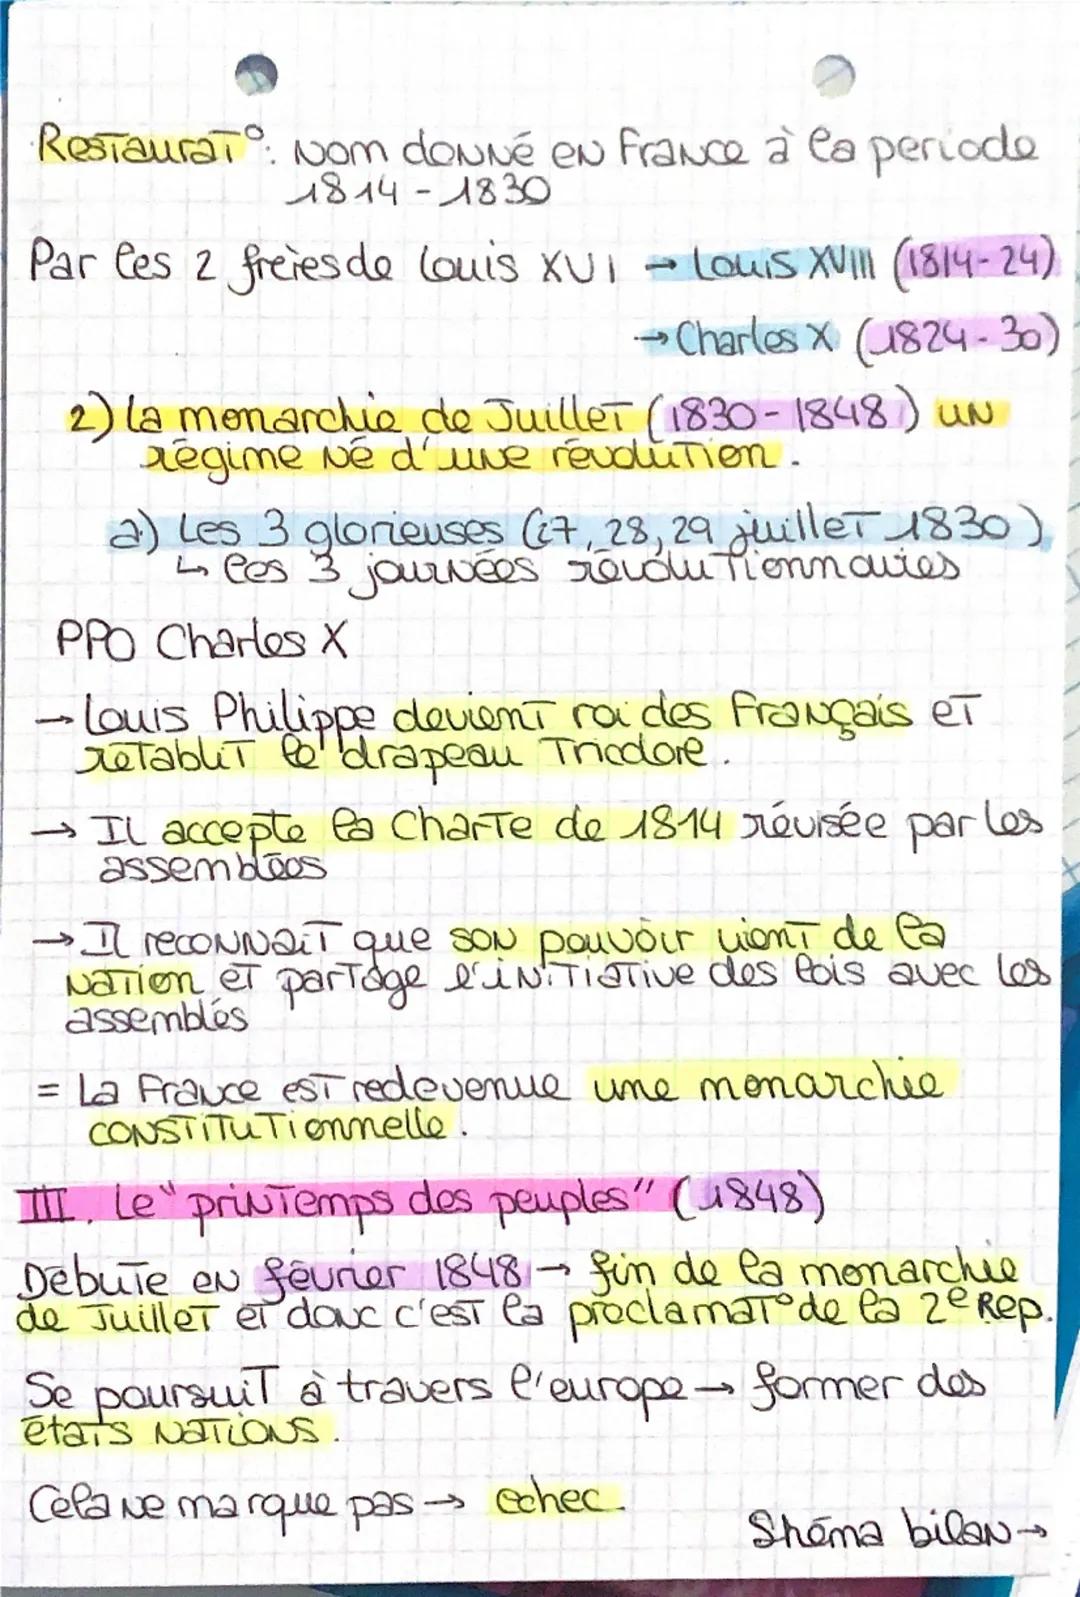 Restaurat°: Nom donné en France à la periode
1814 - 1830
Par les 2 frères de Louis XVI → Louis XVIII (1814-24)
→ Charles X (1824-30)
2) La monarchie de Juillet (1830-1848) un
régime né d'une révolution.
a) Les 3 glorieuses (27, 28, 29 juillet 1830)
↳ les 3 journées révolutionnaires
PPO Charles X
→ Louis Philippe devient roi des Français et
rétablit le drapeau Tricolore.
→ Il accepte la Charte de 1814 révisée par les
assemblées
→ Il reconnait que son pouvoir vient de la
Nation et partage l'initiative des lois avec les
assemblés
= La France est redevenue une monarchie
constitutionnelle.
III. Le "printemps des peuples" (1848)
Débute en février 1848 → fin de la monarchie
de Juillet et donc c'est la proclamat° de la 2e Rep.
Se poursuit à travers l'europe → former des
états Nations.
Cela ne marque pas → echec.
Shéma bilan →